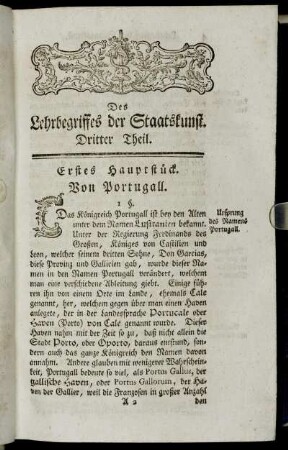 Des
Lehrbegriffes der Staatskunst.
Dritter Theil.
Erstes Hauptstück.
Von Portugall.
1 §.
Das Königreich Portugall ist bey den Alten
unter dem Namen Lusitanien bekannt.
Unter der Regierung Ferdinands des
Großen, Königes von Castilien und
Leon, welcher seinem dritten Sohne, Don Garcias,
diese Provinz und Gallicien gab, wurde dieser Na-
men in den Namen Portugall verändert, welchem
man eine verschiedene Ableitung giebt. Einige füh-
ren ihn von einem Orte im Lande, ehemals Cale
genannt, her, welchen gegen über man einen Haven
anlegte, der in der Landessprache Portucale oder
Haven (Porto) von Cale genannt wurde. Dieser
Haven nahm mit der Zeit so zu, daß nicht allein die
Stadt Porto, oder Oporto, daraus entstund, son-
dern auch das ganze Königreich den Namen davon
annahm. Andere glauben mit wenigerer Wahrschein-
keit, Portugall bedeute so viel, als Portus Gallus, der
gallische Haven, oder Portus Gallorum, der Ha-
ven der Gallier, weil die Franzosen in großer Anzahl
A 2 den
Ursprung
des Namens
Portugall.